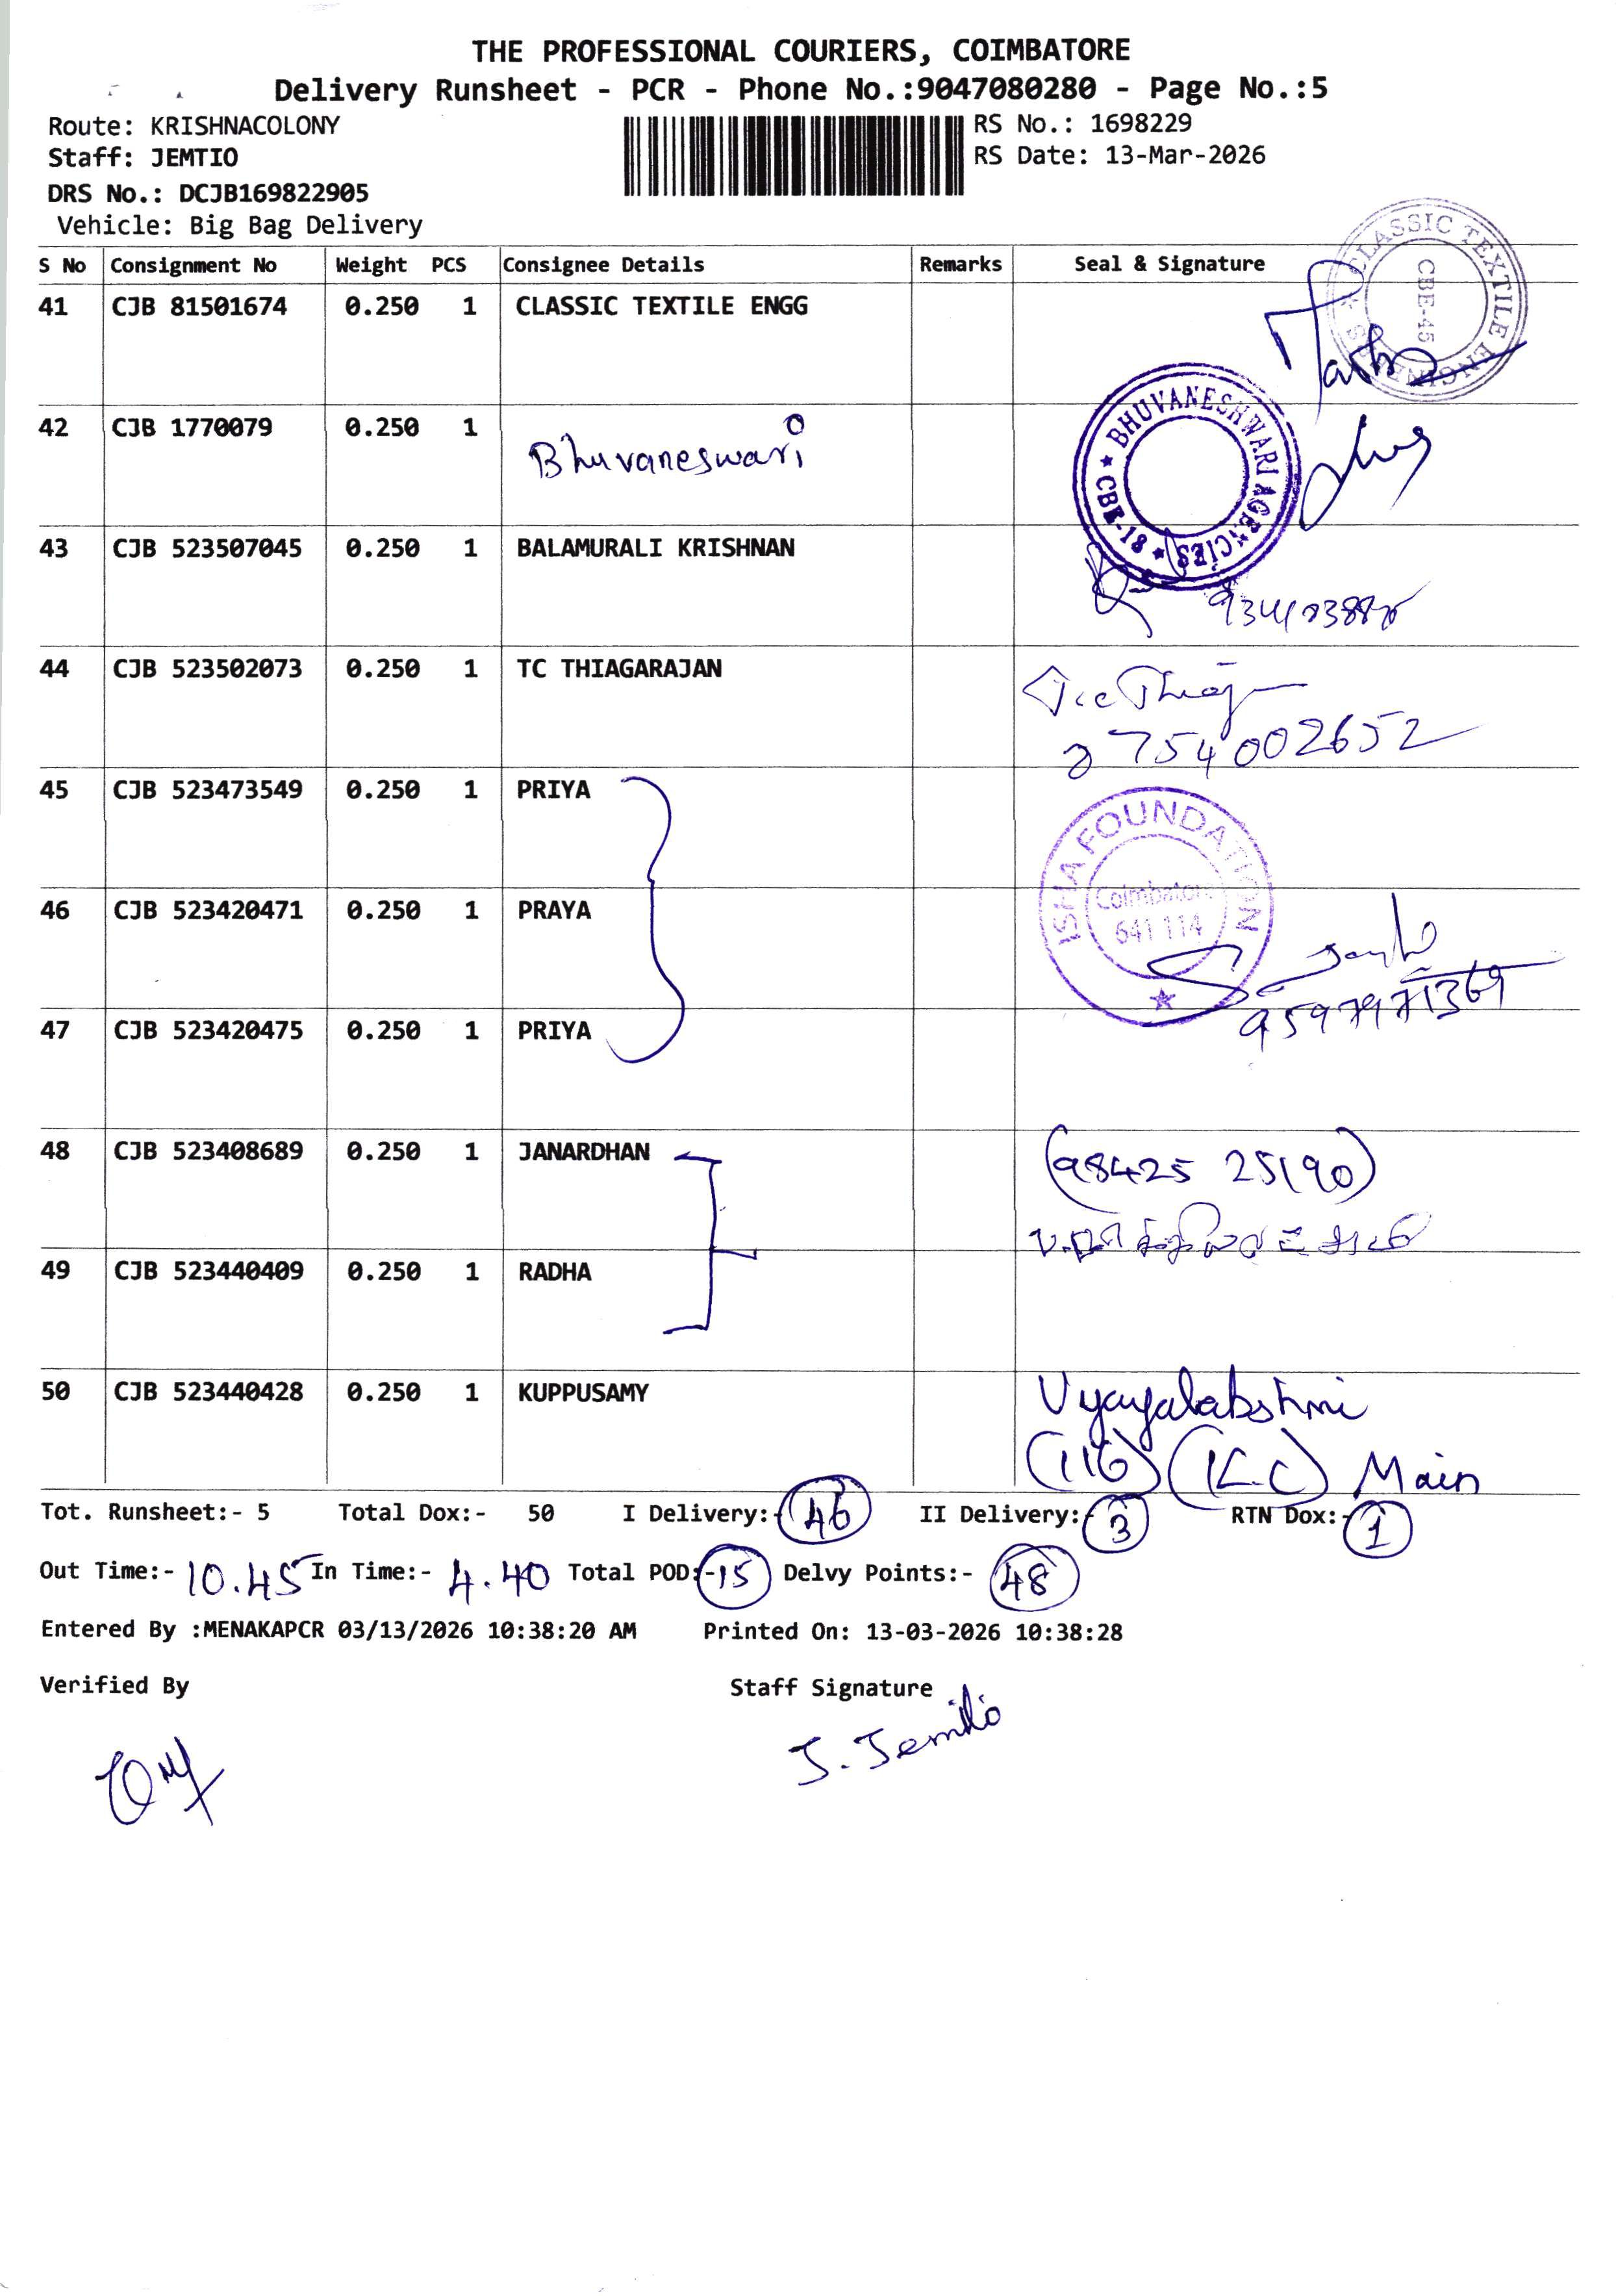 THE PROFESSIONAL COURIERS, COIMBATORE
Delivery Runsheet - PCR - Phone No.:9047080280 - Page No.:5
Route: KRISHNACOLONY
RS No.: 1698229
Staff: JEMTIO
RS Date: 13-Mar-2026
DRS No.: DCJB169822905
Vehicle: Big Bag Delivery
S No Consignment No Weight PCS Consignee Details Remarks Seal & Signature
41 CJB 81501674 0.250 1 CLASSIC TEXTILE ENGG
CLASSIC TEXTILE ENGINEERS
CBE-45
42 CJB 1770079 0.250 1 Bhuvaneswari
BHUVANESHWARI AGENCIES
CBE-18
43 CJB 523507045 0.250 1 BALAMURALI KRISHNAN
44 CJB 523502073 0.250 1 TC THIAGARAJAN
8754002652
45 CJB 523473549 0.250 1 PRIYA
ISHA FOUNDATION
Coimbatore
641 114
46 CJB 523420471 0.250 1 PRAYA
9597971369
47 CJB 523420475 0.250 1 PRIYA
48 CJB 523408689 0.250 1 JANARDHAN
(98425 25190)
49 CJB 523440409 0.250 1 RADHA
50 CJB 523440428 0.250 1 KUPPUSAMY
Vyayalakshmi
(116) (K.C) Main
Tot. Runsheet:- 5 Total Dox:- 50 I Delivery:- 46 II Delivery:- 3 RTN Dox:- 1
Out Time:- 10.45 In Time:- 4.40 Total POD:- 15 Delvy Points:- 48
Entered By :MENAKAPCR 03/13/2026 10:38:20 AM Printed On: 13-03-2026 10:38:28
Verified By
Staff Signature
J. Jemtio